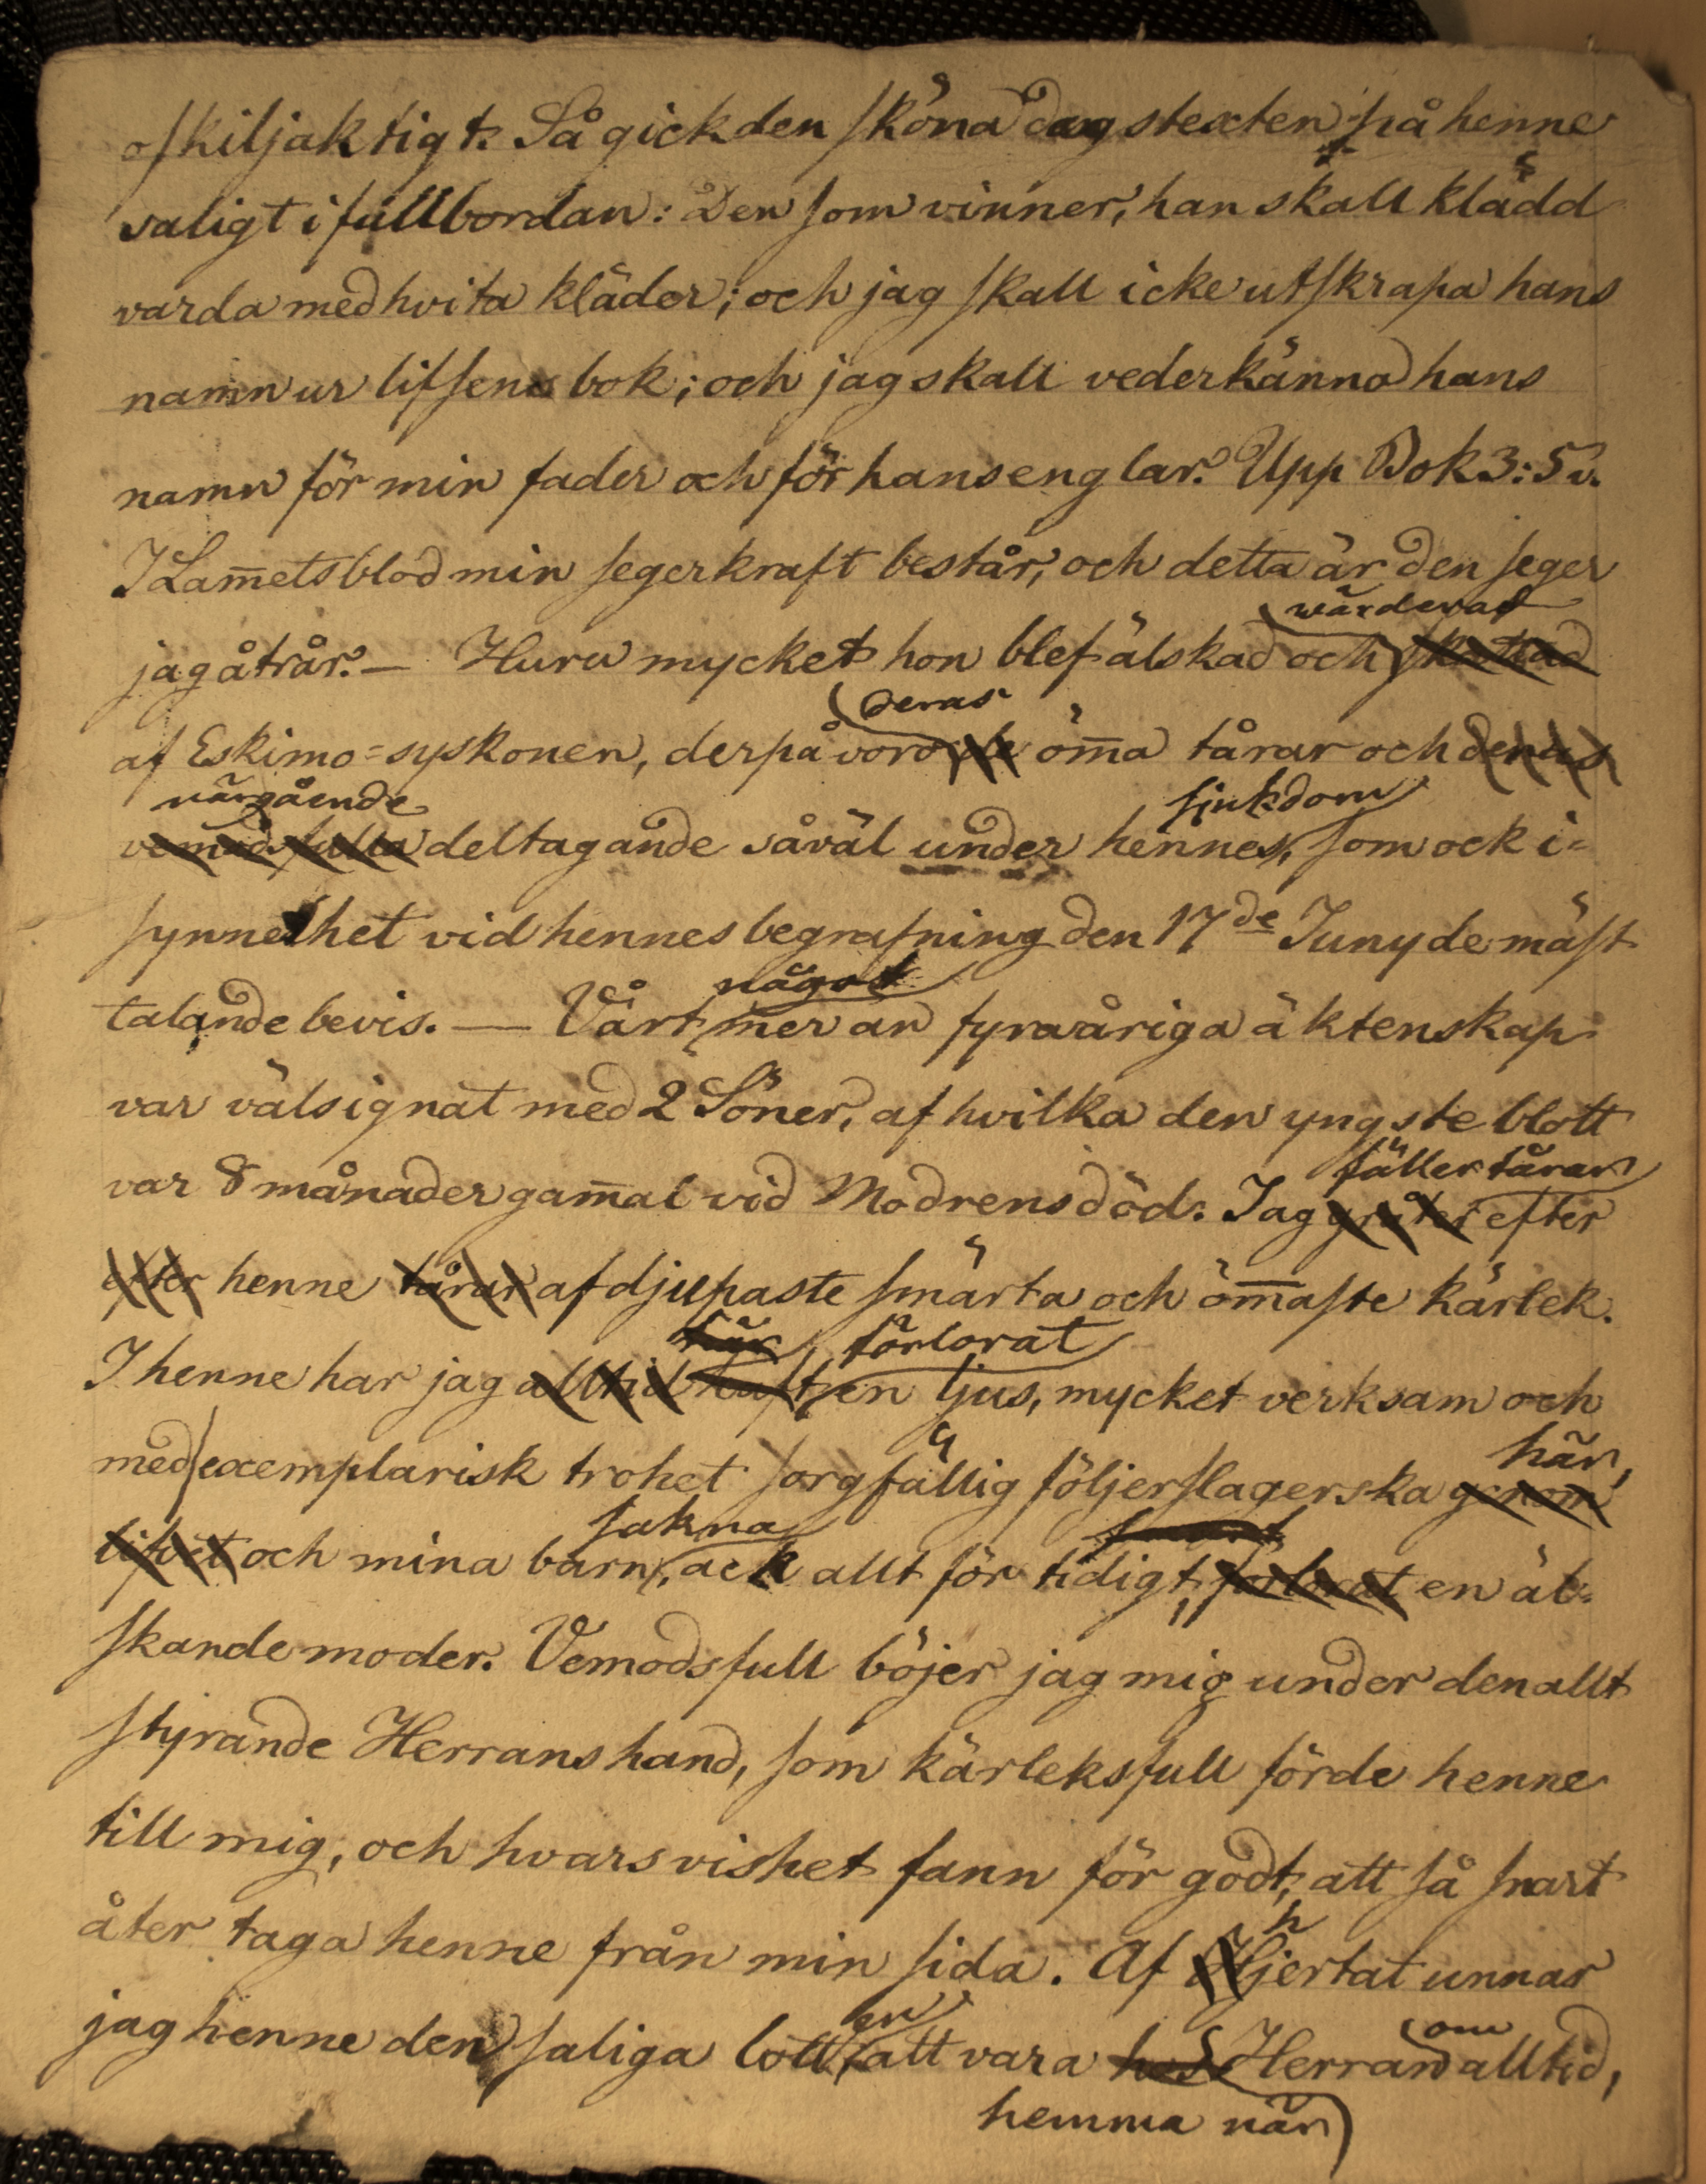 oskiljaktigt. Så gick den sköna dagstexten på henne
saligt i fullbordan: Den som vinner, han skall klädd
varda med hvita kläder; och jag skall icke utskrapa hans
namn ur lifsens bok; och jag skall vederkänna hans
namn för min fader och för hans englar. Upp Bok 3:5 v.
I Lam̅ets blod min segerkraft består, och detta är den seger
wärderad
jag åtrår. — Huru mycket hon blef älskad och skattad
deras
af Eskimo=syskonen, derpå voro de öm̅a tårar och deras
närgående sjukdom
vemodsfulla deltagande såväl under hennes, som ock i=
synnerhet vid hennes begrafning den 17de Juny de mäst
något
talande bevis. — Vårt mer än fyraåriga äktenskap
var välsignat med 2 Söner, af hvilka den yngste blott
fäller tårar
var 8 månader gam̅al vid Modrens död. Jag gråter efter
efter henne tårar af djupaste smärta och öm̅aste kärlek.
här förlorat
I henne har jag alltid haft en ljus, mycket verksam och
här,
med exemplarisk trohet sorgfällig följerslagerska genom
sakna
lifvet och mina barn, ack allt för tidigt, förlorat en äl=
skande moder. Vemodsfull böjer jag mig under den allt
styrande Herrans hand, som kärleksfull förde henne
till mig, och hvars vishet fann för godt, att så snart
h
åter taga henne från min sida. Af Hjertat unnar
en om
jag henne den saliga lott att vara hos Herran alltid,
hemma när